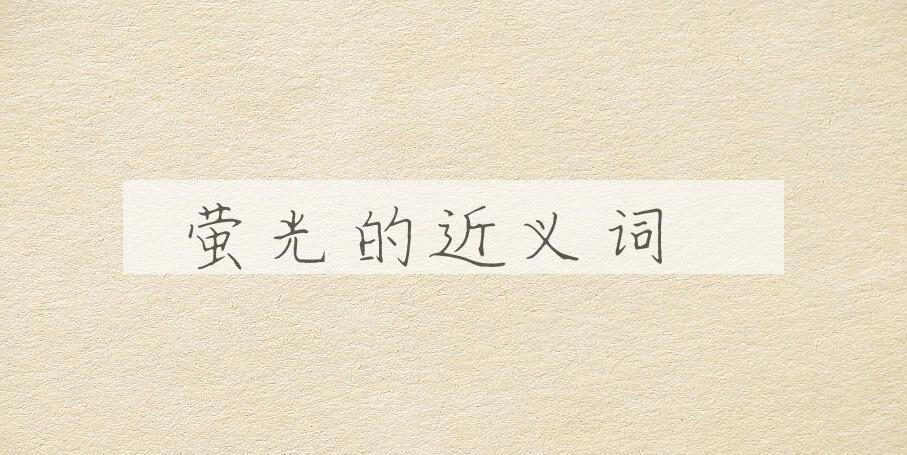 萤光的近义词